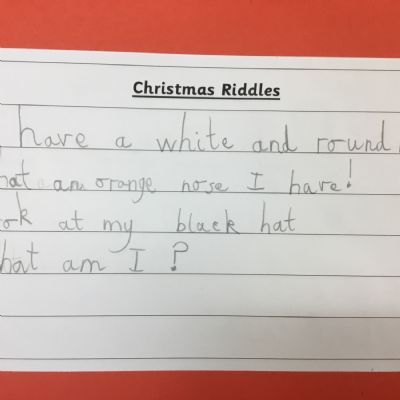 Christmas Riddles
have a white and round
hat an orange nose I have!
ok at my black hat
hat am I ?